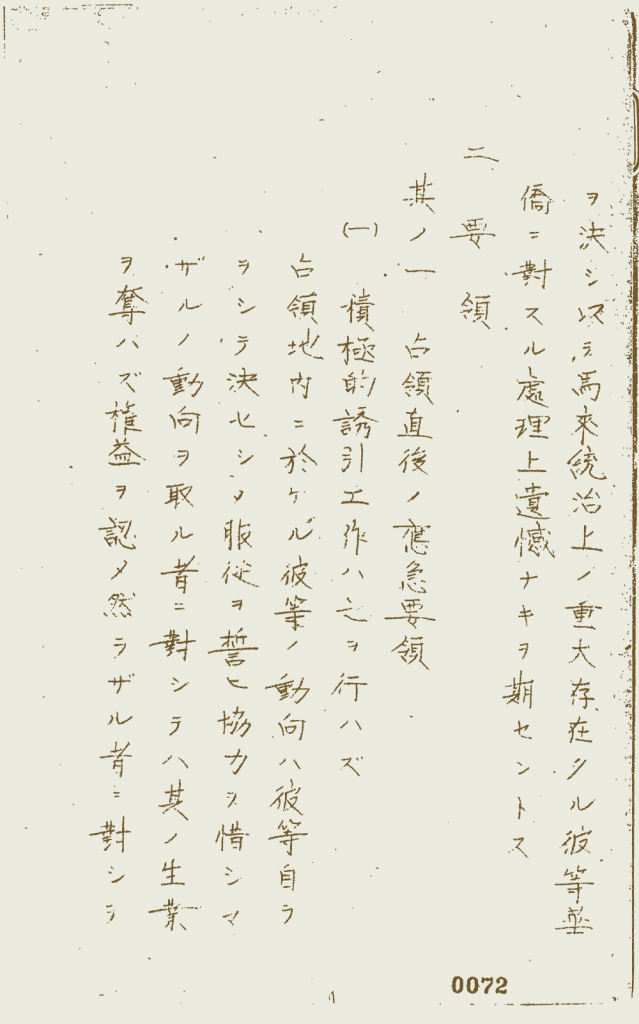 ヲ決シ以テ馬來統治上ノ重大存在タル彼等華
僑ニ對スル處理上遺憾ナキヲ期セントス
二 要領
其ノ一 占領直後ノ應急要領
(一) 積極的誘引工作ハ之ヲ行ハズ
占領地内ニ於ケル彼等ノ動向ハ彼等自ラ
ヲシテ決セシメ服從ヲ誓ヒ協力ヲ惜シマ
ザルノ動向ヲ取ル者ニ對シテハ其ノ生業
ヲ奪ハズ権益ヲ認メ然ラザル者ニ對シテ
0072